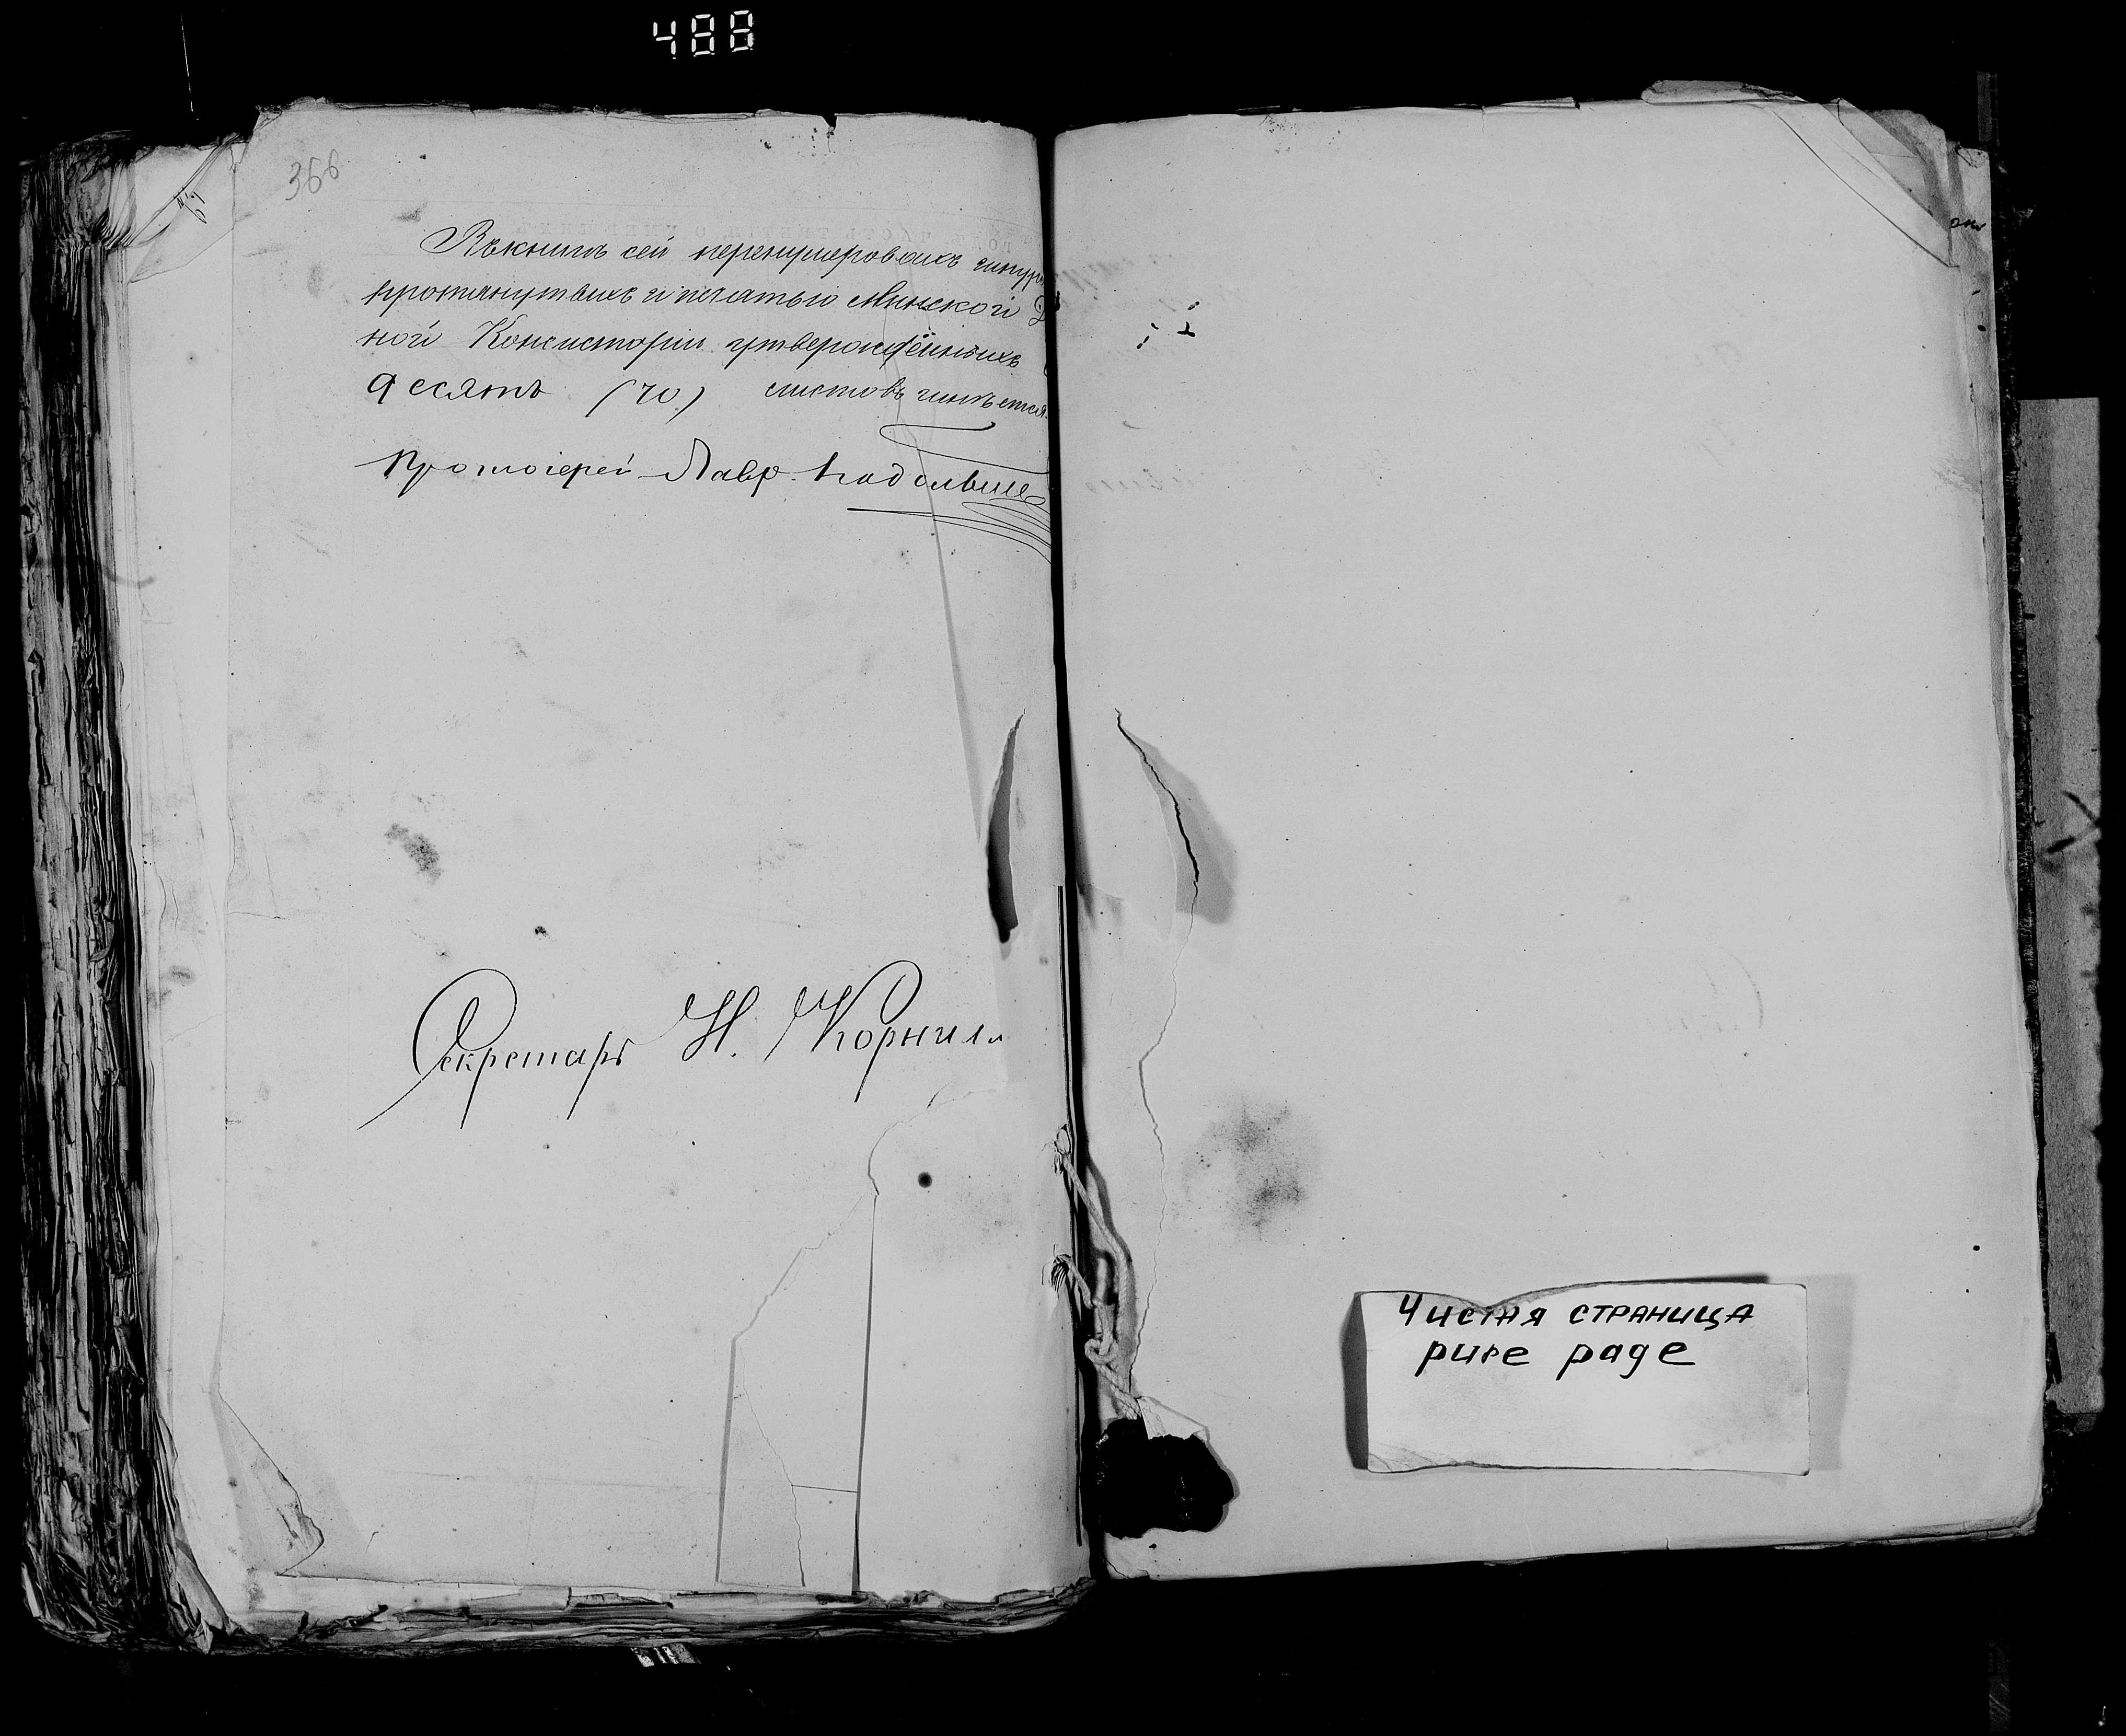 488
366
Въ книгѣ сей перенумерованныхъ шнур
протянутыхъ и печатью Минской Д
ной Консисторіи утвержденныхъ
десятъ (70) листовъ имѣется
Протоіерей Лавр.
Секретарь Н. Корнил
Чистая страница
pure page